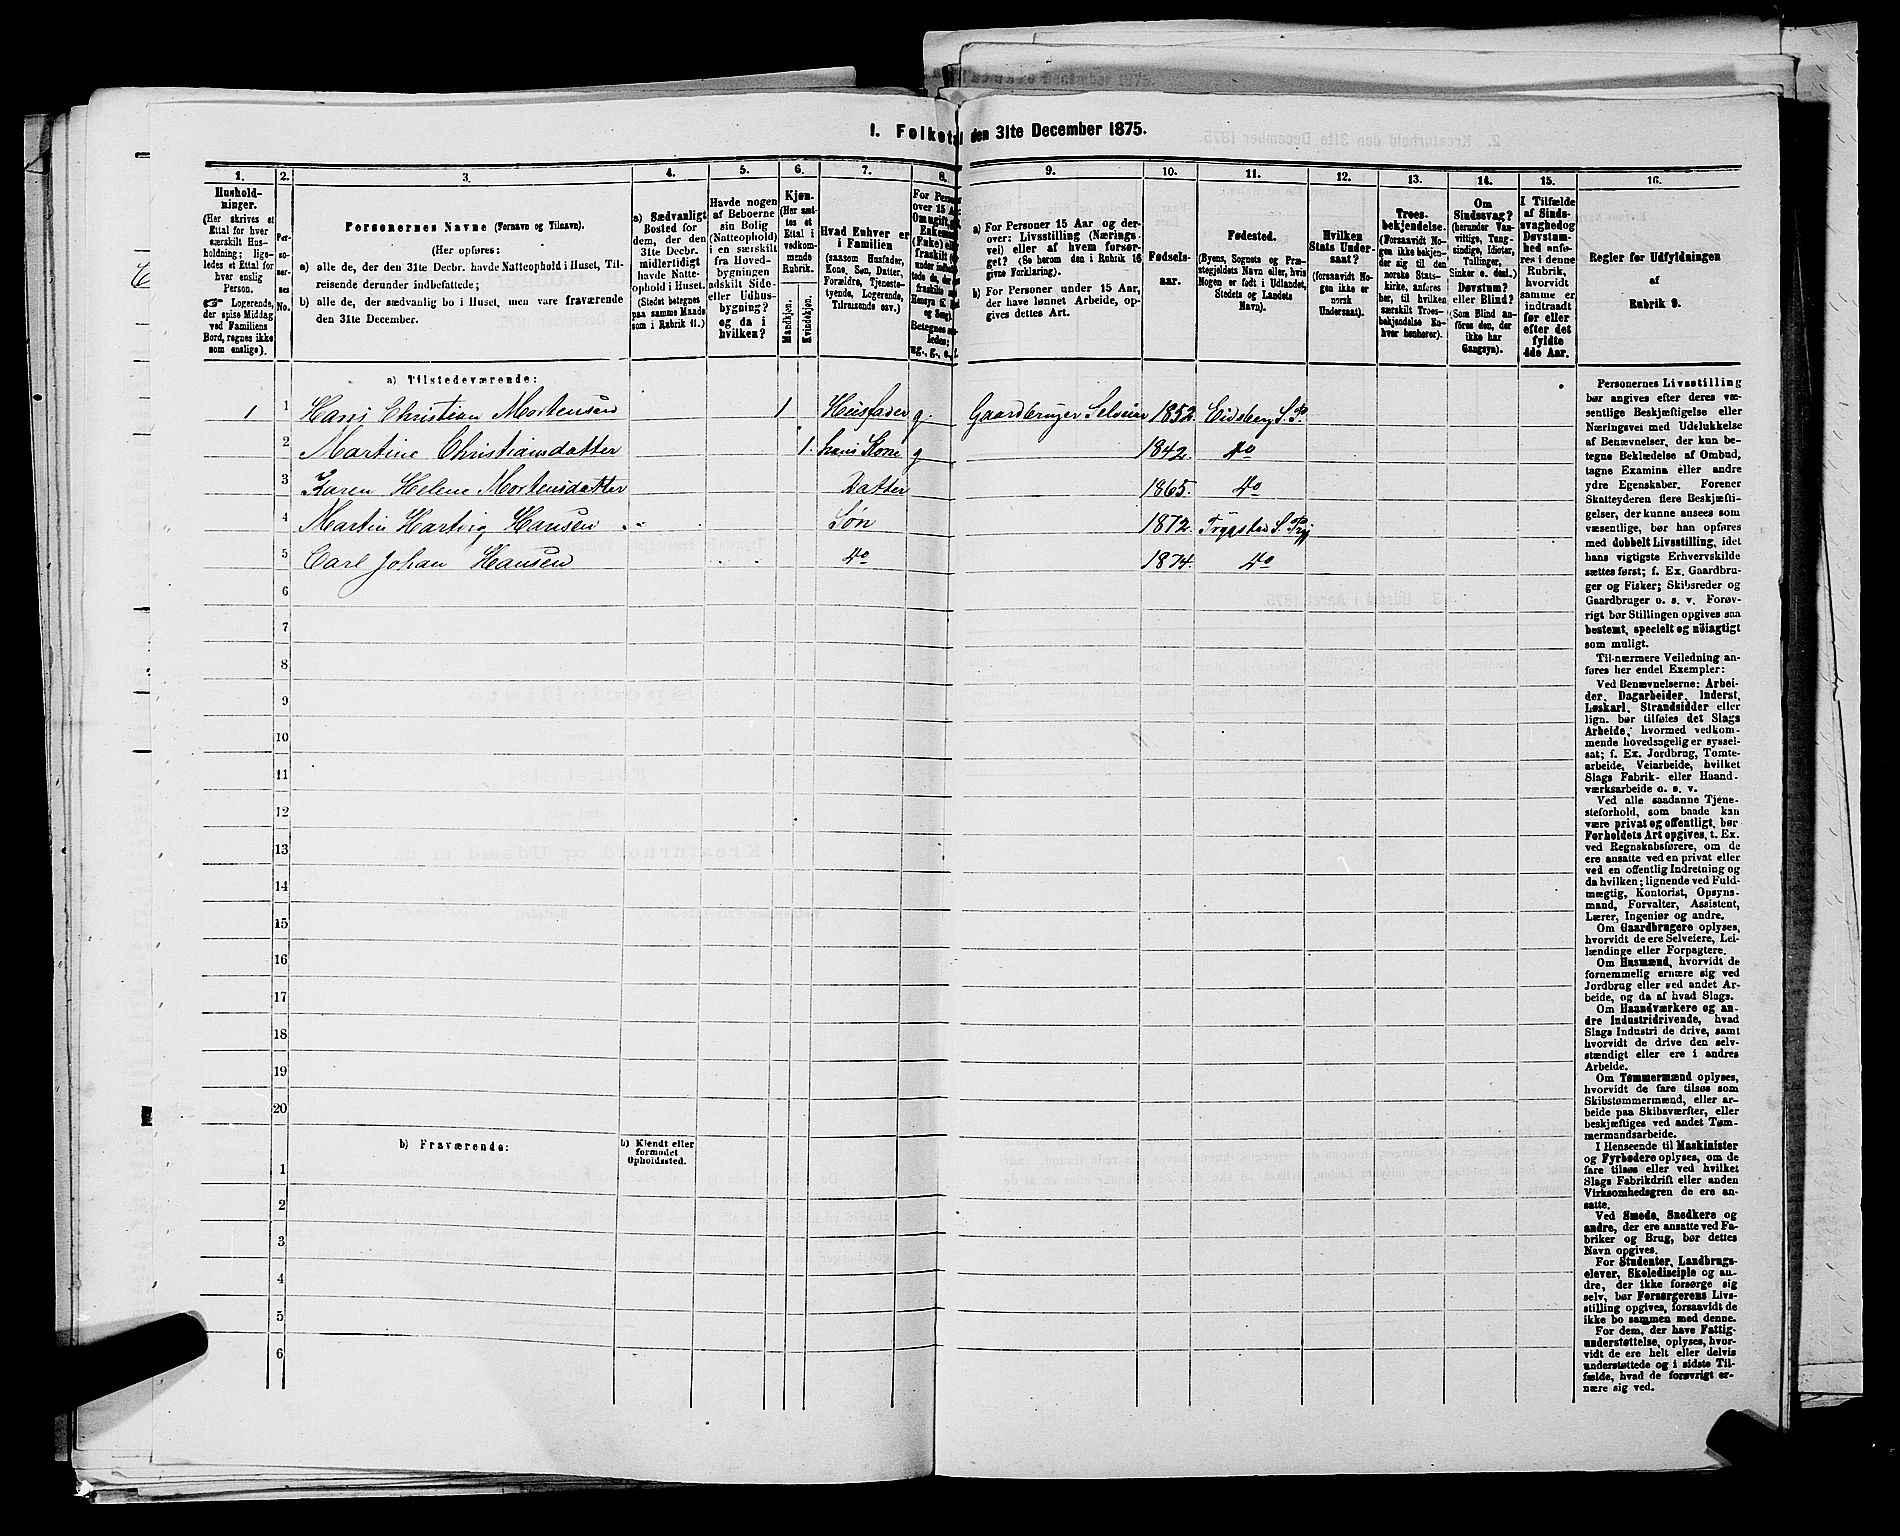 1. Folketal den 31te December 1875.
1.
Hushold-
ninger.
(Her skrives et
Ettal for hver
særskilt Hus-
holdning; lige-
ledes et Ettal for
hver enslig
Person.
☞ Logerende,
der spise Middag
ved Familiens
Bord, regnes ikke
som enslige).
2.
Per-
so-
ner-
nes
No.
3.
Personernes Navne (Fornavn og Tilnavn).
(Her opføres:
a) alle de, der den 31te Decbr. havde Natteophold i Huset, Til-
reisende derunder indbefattede;
b) alle de, der sædvanlig bo i Huset, men vare fraværende
den 31te December.
4.
a) Sædvanligt
Bosted for
dem, der den
31te Decbr.
midlertidigt
havde Natte-
ophold i Huset.
(Stedet betegnes
paa samme Maade
som i Rubrik 11.)
5.
Havde nogen
af Beboerne
sin Bolig
(Natteophold)
i en særskilt
fra Hoved-
bygningen
adskilt Side-
eller Udhus-
bygning?
og da i
hvilken?
6.
Kjøn.
(Her sæt-
tes et
Ettal i
vedkom-
mende
Rubrik.
Mandkjøn.
Kvindekjøn.
7.
Hvad Enhver er
i Familien
(saasom Husfader,
Kone, Søn, Datter,
Forældre, Tjeneste-
tyende, Logerende,
Tilreisende osv.)
8.
For Personer
over 15 Aar:
ledes:
ug., g., e., f.
9.
a) For Personer 15 Aar og der-
over: Livsstilling (Nærings-
vei) eller af hvem forsør-
get? (Se herom den i Rubrik 16
givne Forklaring).
b) For Personer under 15 Aar,
der have lønnet Arbeide, op-
gives dettes Art.
10.
Fødsels-
aar.
11.
Fødested.
(Byens, Sognets og Præ-
stegjeldets Navn eller, hvis
Nogen er født i Udlandet,
Stedets og Landets
Navn).
12.
Hvilken
Stats Under-
saat?
(forsaavidt No-
gen ikke er
norsk
Undersaat).
13.
Troes-
bekjendelse.
(Forsaavidt No-
gen ikke bekjen-
der sig til den
norske Stats-
kirke, anføres
her, til hvilken
særskilt Troes-
bekjendelse En-
hver henhører).
14.
Om
Sindssvag?
(herunder Van-
vittige, Tung-
sindige, Idioter,
Tallinger,
Sinker o. desl.)
Døvstum?
eller Blind?
(Som Blind an-
føres den, der
ikke har
Gangsyn).
15.
I Tilfælde
af Sinds-
svaghed og
Døvstum-
hed anfø-
res i denne
Rubrik,
hvorvidt
samme er
indtraadt
før eller
efter det
fyldte
4de Aar.
16.
Regler for Udfyldningen
af
Rubrik 9.
a) Tilstedeværende:
1 1 Hans Christian Mortensen 1 Husfader g. Gaardbruger Selveier 1852. Eidsberg S. P.
2 Martine Christiansdatter 1. hans Kone g 1842. do
3 Karen Helene Mortensdatter Datter 1865. do
4 Martin Hartvig Hansen Søn 1872. Trygstad S. Prg
5 Carl Johan Hansen do 1874. do
6
7
8
9
10
11
12
13
14
15
16
17
18
19
20
b) Fraværende:
b) Kjendt eller
formodet
Opholdssted.
1
2
3
4
5
6
Personernes Livsstilling
bør angives efter deres væ-
sentlige Beskjæftigelse eller
Næringsvei med Udelukkelse
af Benævnelser, der kun be-
tegne Beklædelse af Ombud,
tagne Examina eller andre
ydre Egenskaber. Forener
Skatteyderen flere Beskjæfti-
gelser, der kunne ansees som
væsentlige, bør han opføres
med dobbelt Livsstilling, idet
hans vigtigste Erhvervskilde
sættes først; f. Ex. Gaardbru-
ger og Fisker; Skibsreder og
Gaardbruger o. s. v. Forøv-
rigt bør Stillingen opgives saa
bestemt, specielt og nøiagtigt
som muligt.
Til nærmere Veiledning an-
føres her endel Exempler:
Ved Benævnelserne: Arbei-
der, Dagarbeider, Inderst,
Løskarl, Strandsidder eller
lign. bør tilføies det Slags
Arbeide, hvormed vedkom-
mende hovedsagelig er syssel-
sat; f. Ex. Jordbrug, Tomte-
arbeide, Veiarbeide, hvilket
Slags Fabrik- eller Haand-
værksarbeide o. s. v.
Ved alle saadanne Tjene-
steforhold, som baade kan
være privat og offentligt, bør
Forholdets Art opgives, t. Ex.
ved Regnskabsførere, om de
ere ansatte ved en privat eller
ved en offentlig Indretning og
da hvilken; lignende ved Fuld-
mægtig, Kontorist, Opsyns-
mand, Forvalter, Assistent,
Lærer, Ingeniør og andre.
Om Gaardbrugere oplyses,
hvorvidt de ere Selveiere, Lei-
lændinge eller Forpagtere.
Om Husmænd, hvorvidt de
fornemmelig ernære sig ved
Jordbrug eller ved andet Ar-
beide, og da af hvad Slags.
Om Haandværkere og an-
dre Industridrivende, hvad
Slags Industri de drive, samt
hvorvidt de drive den selv-
stændigt eller ere i andres
Arbeide.
Om Tømmermænd oplyses,
hvorvidt de fare tilsøs som
Skibstømmermænd, eller ar-
beide paa Skibsværfter, eller
beskjæftiges ved andet Tøm-
mermandsarbeide.
I Henseende til Maskinister
og Fyrbødere oplyses, om de
fare tilsøs eller ved hvilket
Slags Fabrikdrift eller anden
Virksomhedsgren de ere an-
satte.
Ved Smede, Snedkere og
andre, der ere ansatte ved Fa-
briker og Brug, bør dettes
Navn opgives.
For Studenter, Landbrugs-
elever, Skoledisciple og an-
dre, der ikke forsørge sig
selv, bør Forsørgerens Livs-
stilling opgives, forsaavidt de
ikke bo sammen med denne.
For dem, der have Fattig-
understøttelse, oplyses, hvor-
vidt de ere helt eller delvis
understøttede og i sidste Til-
fælde, hvad de forøvrigt er-
nære sig ved.